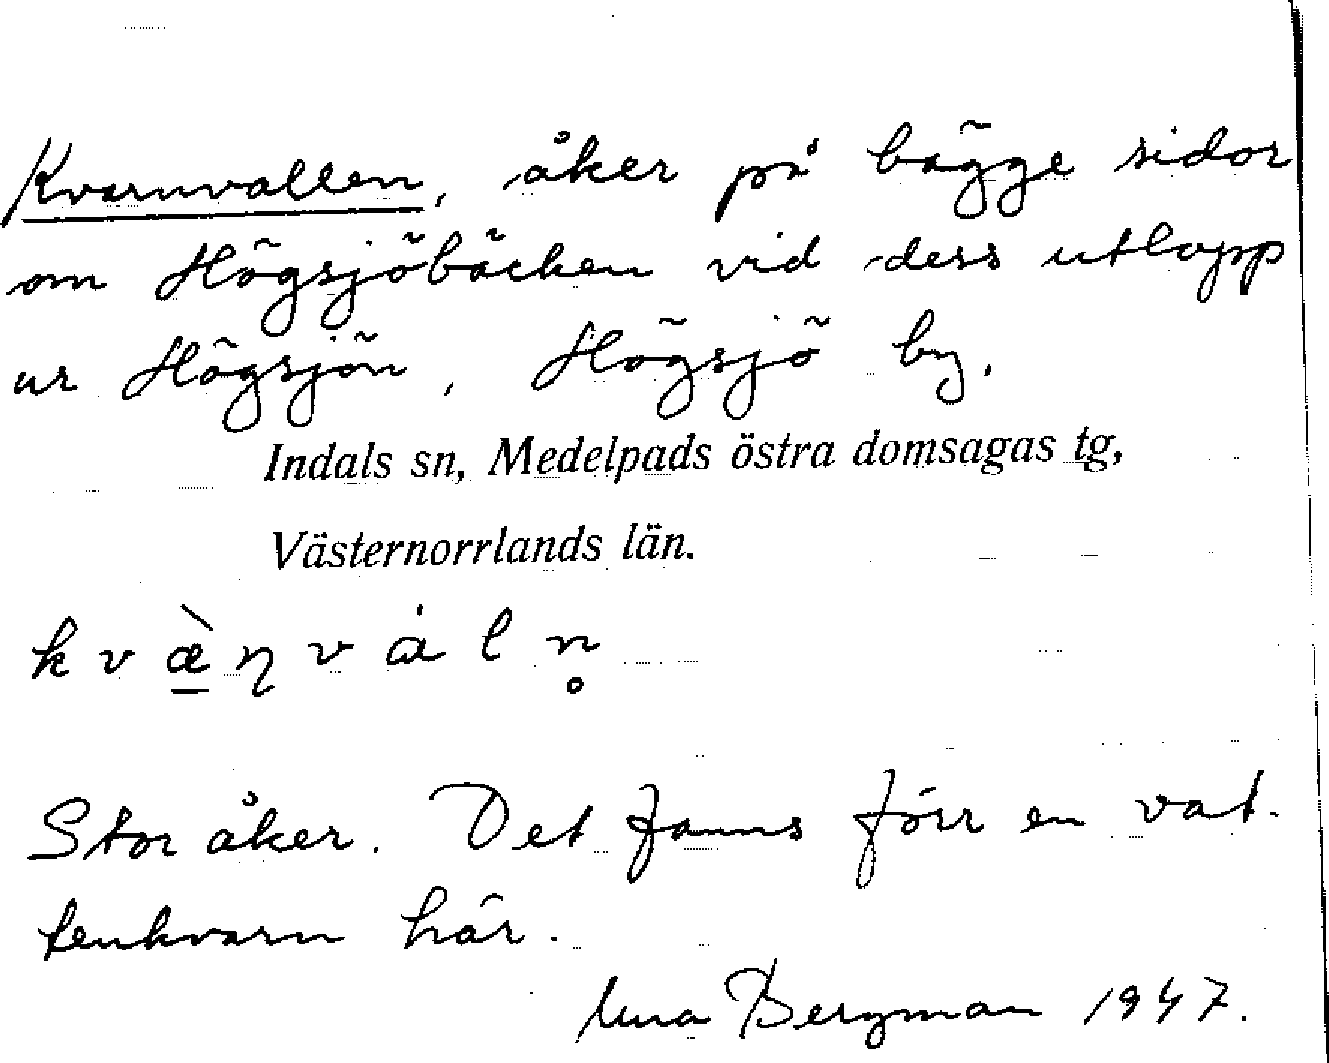 Kvarnvallen, åker på bägge sidor
om Högsjöbäcken vid dess utlopp
ur Högsjön, Högsjö by.
Indals sn, Medelpads östra domsagas tg,
Västernorrlands län.
k v æ̱̀ ɳ v á l n̥
Stor åker. Det fanns förr en vat-
tenkvarn här.
Bergman 1947.